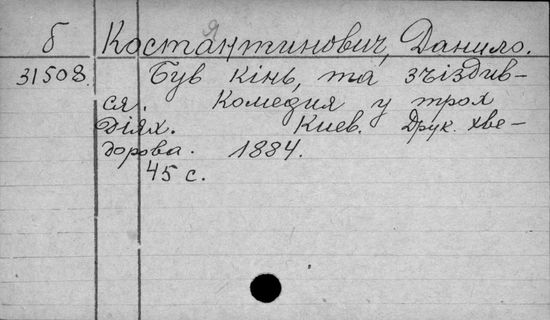 б Костянтинович, Данило.
31508 Був кінь, та зъіздив-
ся. Комедия у трох
діях. Киев. Друк. Хве-
дорова. 1884.
45 с.